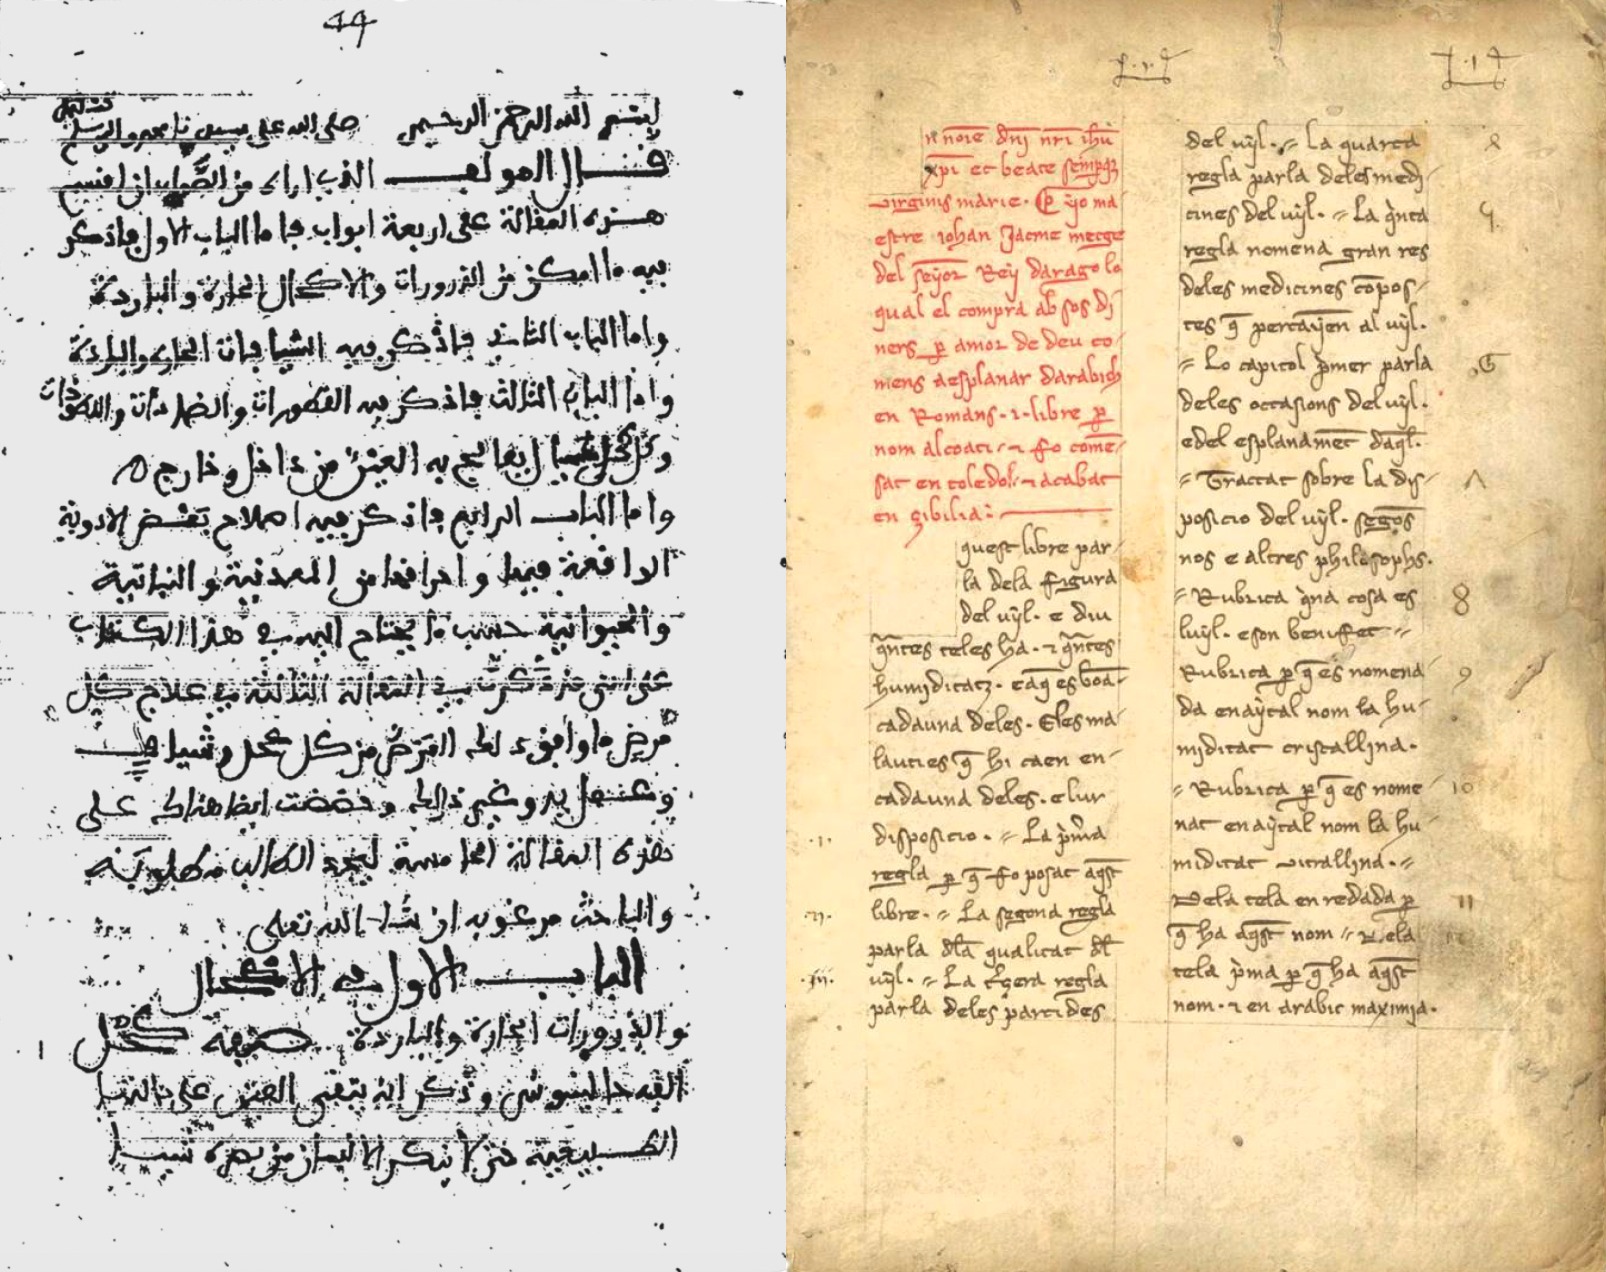 44
بسم الله الرحمن الرحيم صلى الله على سيدنا محمد واله وسلم
قال المولف الذي اراه من الصواب ان اقسم
هذه المقالة على اربعة ابواب فاما الباب الاول فاذكر
فيه ما امكن من الذرورات والاكحال الحارة والباردة
واما الباب الثاني فاذكر فيه الشيافات الحارة والباردة
واما الباب الثالث فاذكر فيه القطورات والضمادات
وكل يعالج به العين من داخل وخارج
واما الباب الرابع فاذكر فيه اصلاح بعض الادوية
الواقعة فيها واحراقها من المعدنية والنباتية
والحيوانية حسب ما يحتاج اليه في هذا الكتاب
على انني قد ذكرت في المقالة الثالثة في علاج كل
مرض ما وافق ذلك المرض من كل كحل وشياف
وغير ذلك على
هذه المقالة الخامسة ليجد الطالب مطلوبه
والباحث مرغوبه ان شا الله تعلى
الباب الاول في الاكحال
والذرورات الحارة والباردة صفة كحل
الفه جالينوش وذكر انه يبقي العين على حالتها
الطبيعية
.p.i.a
n noīe dnī nrī ihū
xpī et beate semper
virginis marie. E yo ma
estre iohan Jacme metge
del seyor Rey darago lo
qual el compra ab sos di
ners per amor de deu co
mens aesplanar darabich
en Romans .i. libre per
nom alcoati. et fo comē
sat en toledo. et acabat
en xibilia:
quest libre par
la dela figura
del uyl. e diu
qntes teles ha. et qntes
humiditatz. eaq es boa
cadauna deles. Eles ma
lauties q hi caen en
cadauna deles. e lur
.i. disposicio. = La pma
regla per q fo posat aqst
.ii. libre. = La segona regla
parla dla qualitat dl
.iii. uyl. = La tçera regla
parla deles partides
del uyl. = la quarta
regla parla deles medi
cines del uyl. = La qnta
regla nomena gran res
deles medicines cōpos
tes q pertayen al uyl.
= Lo capitol pmer parla
deles occasions del uyl.
e del esplanamet daql.
= Tractat sobre la dis
posicio del uyl. segōs
nos e altres philosophs.
= Rubrica qna cosa es 8
luyl. e son benifet =
Rubrica per q es nomena 9
da en aytal nom la hu
miditat cristallina.
= Rubrica per q es nome 10
nat en aytal nom la hu
miditat vitrallina. =
Dela tela en redada per 11
q ha aqst nom = Dela
tela pma per q ha aqst
nom. et en arabic maximia.